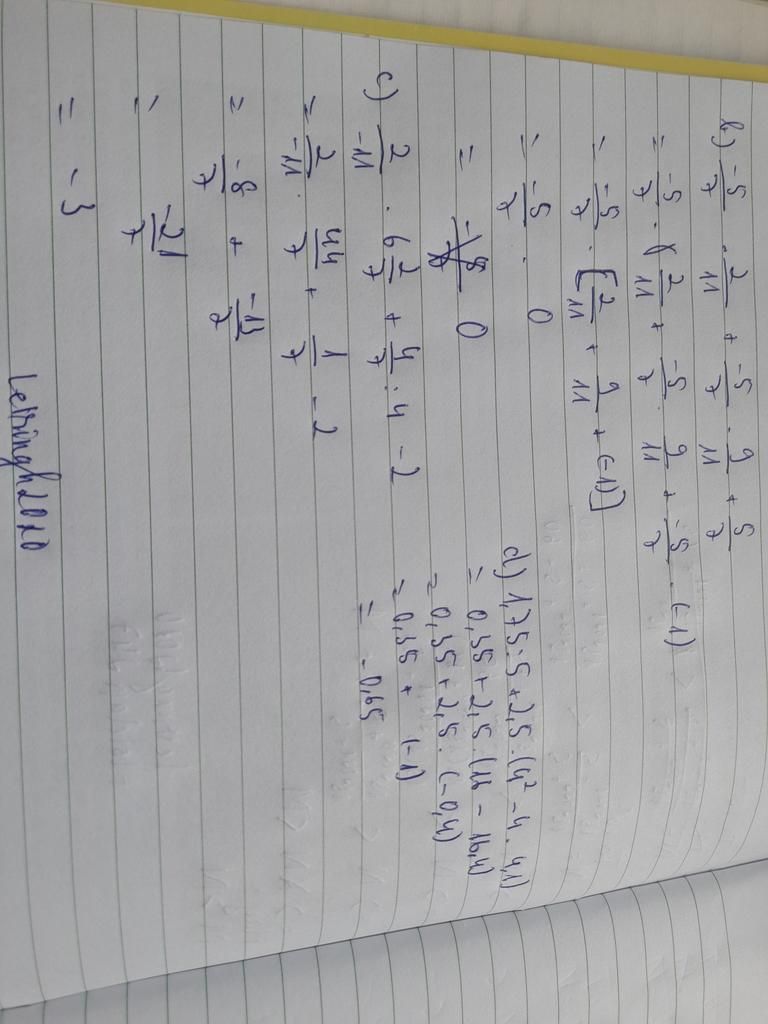 b) \frac{-5}{7} \cdot \frac{2}{11} + \frac{-5}{7} \cdot \frac{9}{11} + \frac{5}{7}
= \frac{-5}{7} \cdot \frac{2}{11} + \frac{-5}{7} \cdot \frac{9}{11} + \frac{-5}{7} \cdot (-1)
= \frac{-5}{7} \cdot [\frac{2}{11} + \frac{9}{11} + (-1)]
= \frac{-5}{7} \cdot 0
= 0
c) \frac{2}{-11} \cdot 6\frac{2}{7} + \frac{4}{7} : 4 - 2
= \frac{2}{-11} \cdot \frac{44}{7} + \frac{1}{7} - 2
= \frac{-8}{7} + \frac{-13}{7}
= \frac{-21}{7}
= -3
d) 1,75 : 5 + 2,5 : (4² - 4 \cdot 4,1)
= 0,35 + 2,5 \cdot (16 - 16,4)
= 0,35 + 2,5 \cdot (-0,4)
= 0,35 + (-1)
= -0,65